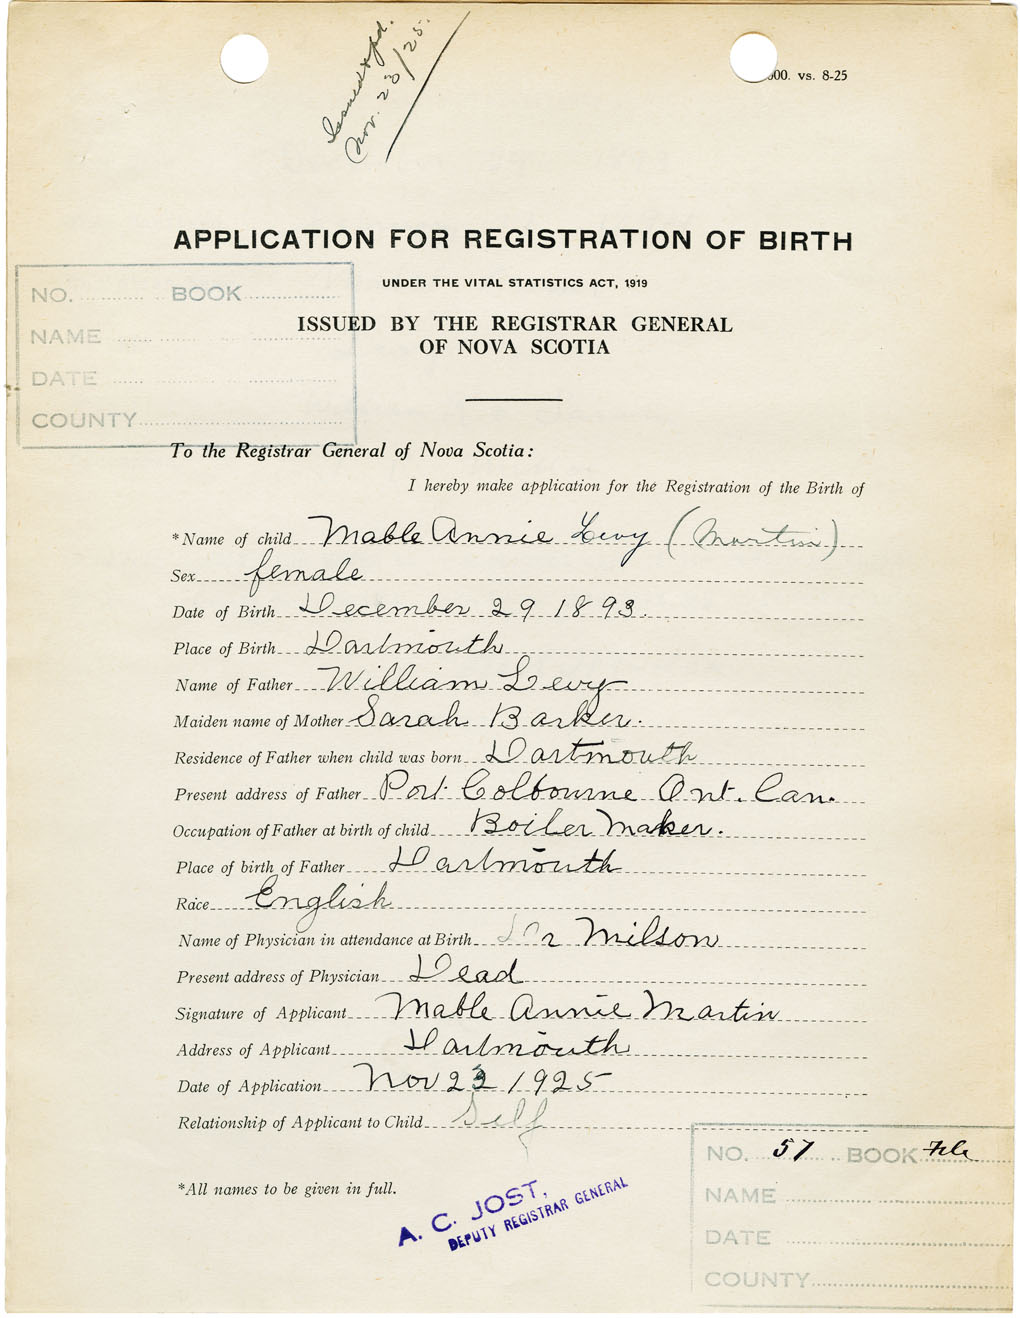 Issued & pd.
Nov. 23/25.
000. vs. 8-25
APPLICATION FOR REGISTRATION OF BIRTH
UNDER THE VITAL STATISTICS ACT, 1919
ISSUED BY THE REGISTRAR GENERAL
OF NOVA SCOTIA
NO. BOOK
NAME
DATE
COUNTY
To the Registrar General of Nova Scotia:
I hereby make application for the Registration of the Birth of
*Name of child Mable Annie Levy (Martin)
Sex female
Date of Birth December 29 1893.
Place of Birth Dartmouth
Name of Father William Levy
Maiden name of Mother Sarah Barker.
Residence of Father when child was born Dartmouth
Present address of Father Port Colbourne Ont. Can.
Occupation of Father at birth of child Boiler Maker.
Place of birth of Father Dartmouth
Race English
Name of Physician in attendance at Birth Dr Milson
Present address of Physician Dead
Signature of Applicant Mable Annie Martin
Address of Applicant Dartmouth
Date of Application Nov 23 1925
Relationship of Applicant to Child Self
*All names to be given in full.
A. C. JOST,
DEPUTY REGISTRAR GENERAL
NO. 57 BOOK File
NAME
DATE
COUNTY